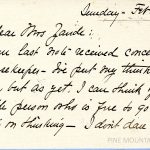 Sunday - Feb
Dear Mrs Zande:
our last note received conce
sekeeper - I've put my think
, but as yet I can think of
le person who is free to go
on thinking - I don't dare
PINE MOUNTAI